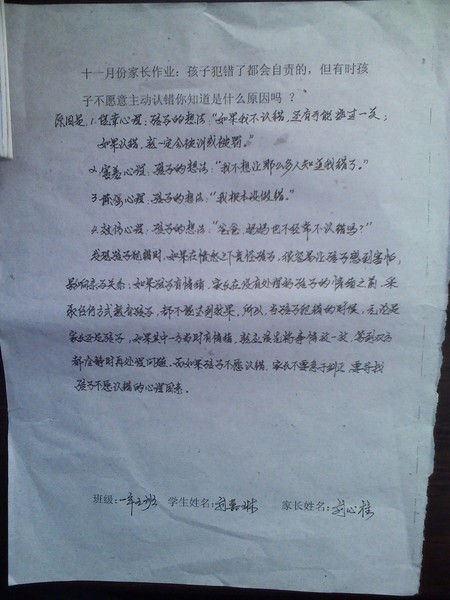 十一月份家长作业：孩子犯错了都会自责的，但有时孩
子不愿意主动认错你知道是什么原因吗？
原因是：1.侥幸心理：孩子的想法：“如果我不认错，还有可能逃过一关；
如果认错，就一定会被训或被罚。”
2.害羞心理：孩子的想法：“我不想让那么多人知道我错了。”
3.心理：孩子的想法：“我根本没做错。”
4.效仿心理：孩子的想法：“爸爸、妈妈也不经常不认错吗？”
发现孩子犯错时，如果在愤怒之下责怪孩子，很容易让孩子感到害怕，
影响亲子关系；如果孩子有情绪，家长在没有处理好孩子的情绪之前，采
取任何方式教育孩子，都不能达到效果。所以，当孩子犯错的时候，无论是
家长还是孩子，如果其中一方当时有情绪，就应该先将事情放一放，等到双方
都冷静时再处理问题。而如果孩子不愿认错，家长不要急于纠正，要寻找
孩子不愿认错的心理因素。
班级：一年五班 学生姓名： 家长姓名：